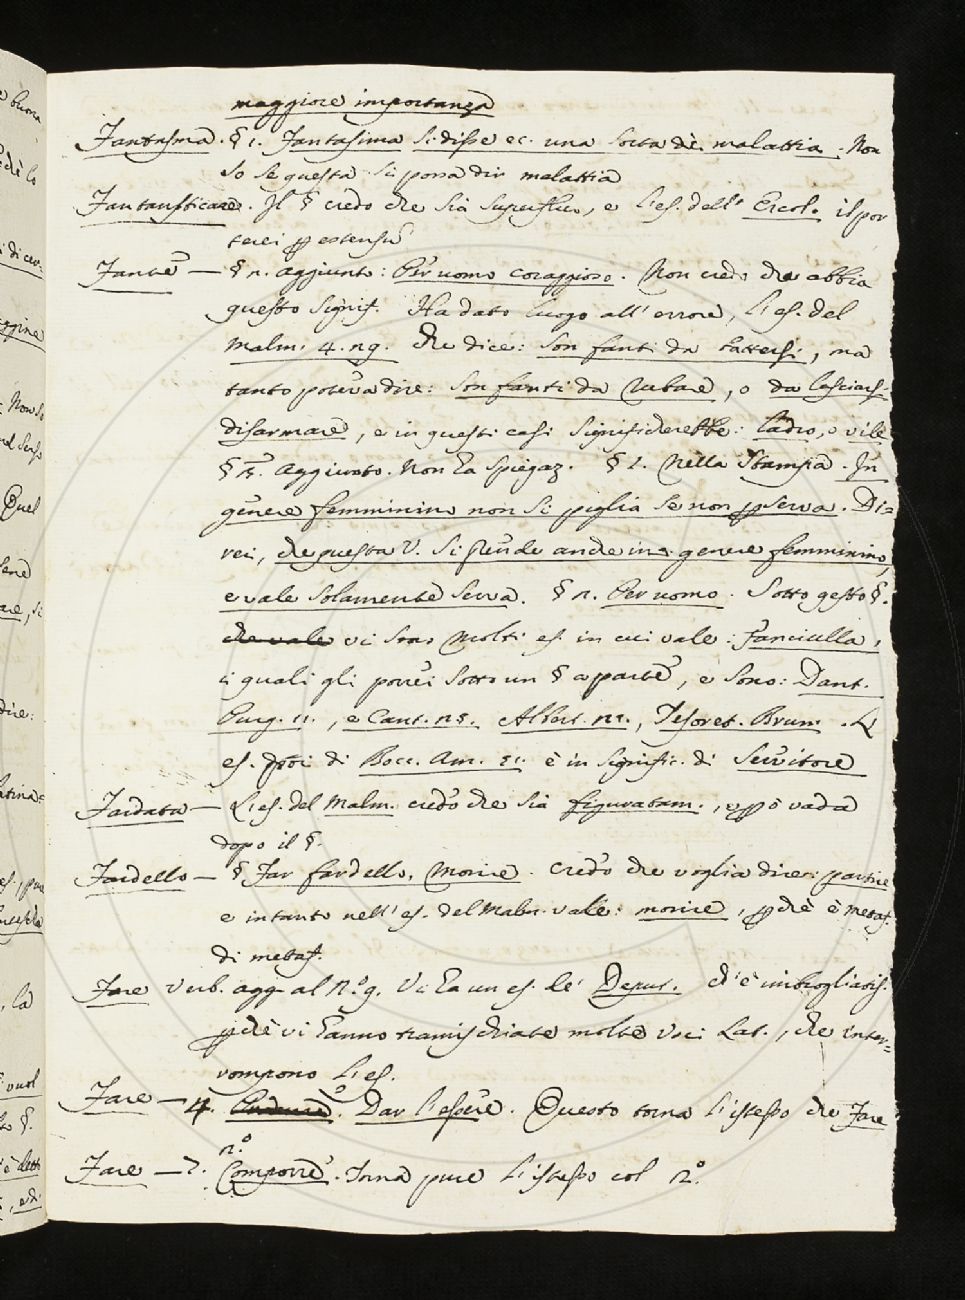 maggiore importanza
Fantasma. § 1. Fantasima si disse ec. una sorta di malattia. Non
so se questa si possa dir malattia
Fantasticare. Il § credo che sia superfluo, e l'es. dell' Ercol. il por
terei per estensiv
Fante — § 1. aggiunto: Per uomo coraggioso. Non credo che abbia
questo signif. Ha dato luogo all' errore, l'es. del
Malm. 4. 29. che dice: son fanti da battersi, ma
tanto poteva dire: son fanti da rubare, o da lasciarsi
disarmare, e in questi casi significherebbe: ladro, o vile
§ aggiunto. Non ha spiegaz. § 2. Nella Stampa. In
genere femminino non si piglia se non per serva. Di=
rei, che questa V. si prende anche in genere femminino,
e vale solamente serva. § 1. Per uomo. Sotto questo §.
che vale vi sono molti es. in cui vale: Fanciullo,
i quali gli porrei sotto un § a parte, e sono: Dant.
Purg. 11., e Cant. 25. Albert. Tesoret. Brun. L'
es. poi di Bocc. Am. è in signific. di Servitore
Fardata — L'es. del Malm. credo che sia figuratam., e però vada
dopo il §.
Fardello — § Far fardello, Morire. Credo che voglia dire: partire
e intanto nell' es. del Malm. vale: morire, perchè è metaf.
di metaf.
Fare verb. agg. al N.° 9. Vi ha un es. de' Deput. ch'è imbrogliatis.
perchè vi hanno tramischiate molte voci Lat., che inter=
rompono l'es.
Fare — 4. Dar l'essere. Questo torna l'istesso che Fare
2.°
Fare — 7. Comporre. Torna pure l'istesso col 2.°